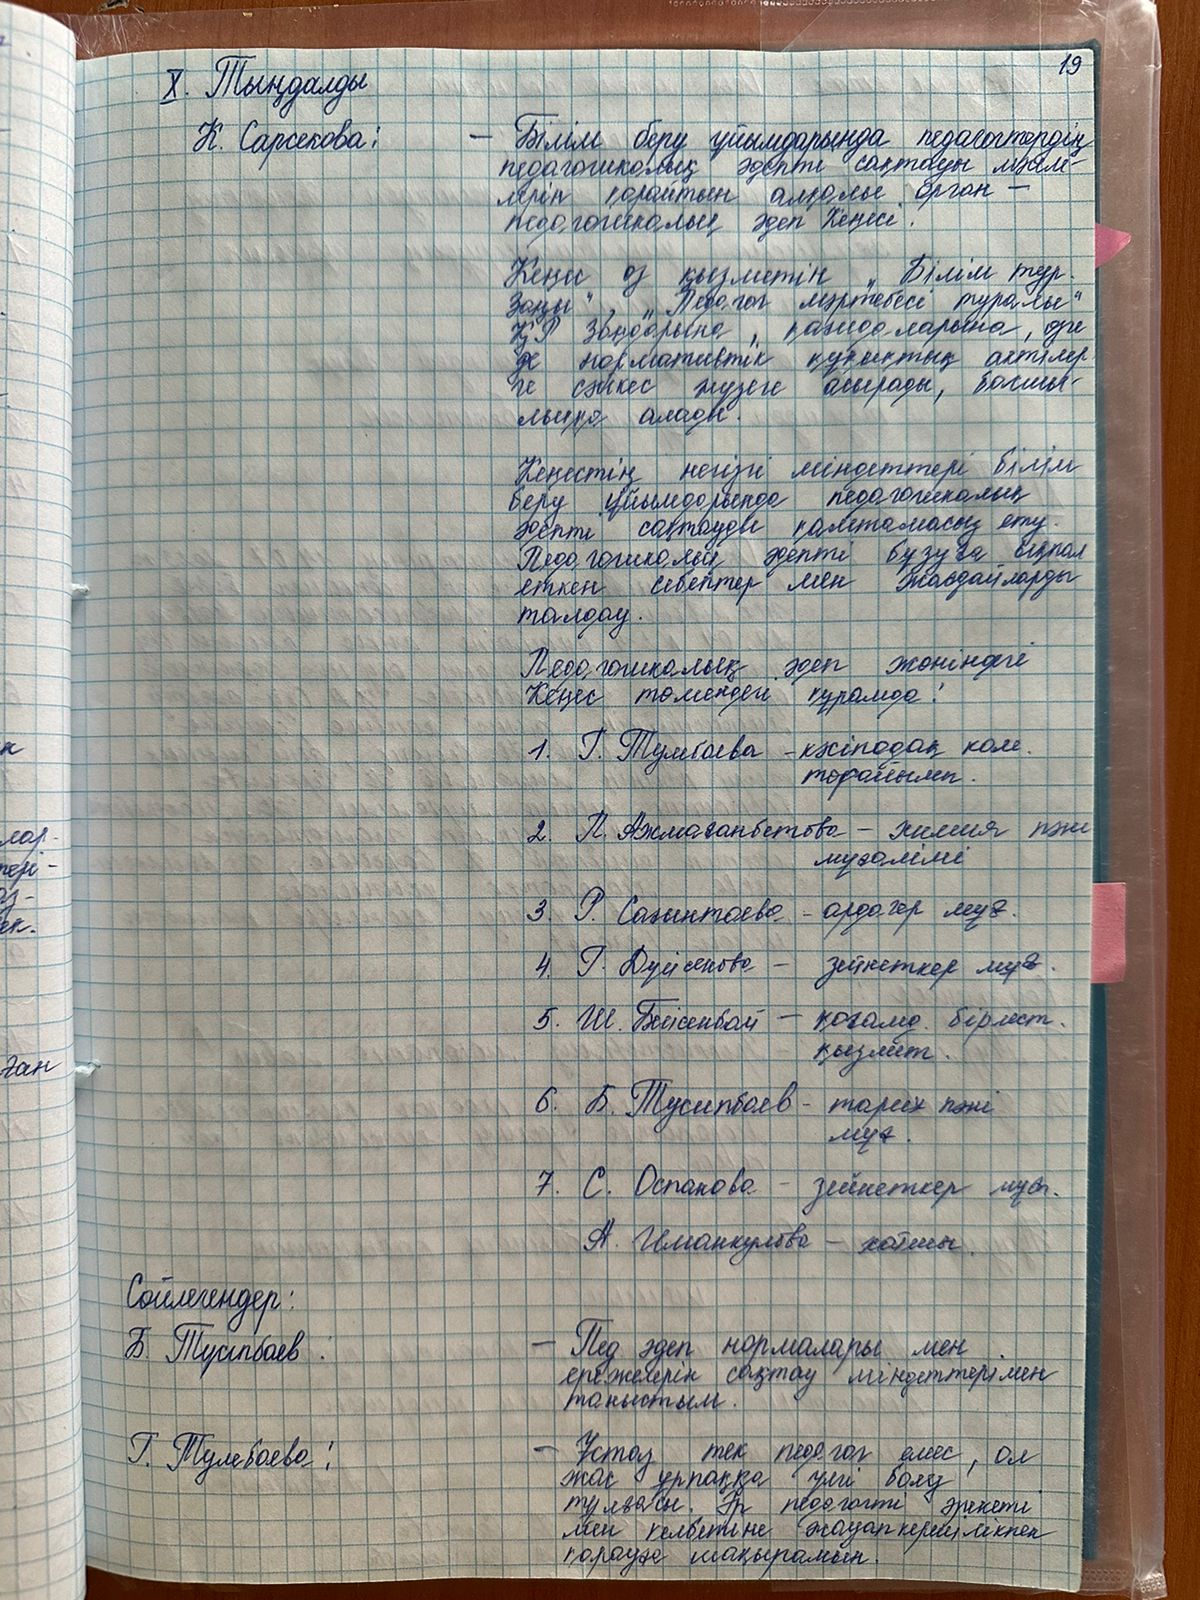 19
X. Тыңдалды
К. Сарсекова: – Білім беру ұйымдарында педагогтердің
педагогикалық әдепті сақтауы мәсе-
лерін қарайтын алқалы орган –
педагогикалық әдеп Кеңесі.
Кеңес өз қызметін „Білім тур.
Заңы", „Педагог мәртебесі туралы"
ҚР Заңдарына, қағидаларына, өзге
де нормативтік құқықтық актілер
ге сәйкес жүзеге асырады, басшы-
лыққа алады.
Кеңестің негізгі міндеттері білім
беру ұйымдарында педагогикалық
әдепті сақтауды қамтамасыз ету.
Педагогикалық әдепті бұзуға ықпал
еткен себептер мен жағдайларды
талдау.
Педагогикалық әдеп жөніндегі
Кеңес төмендегі құрамда:
1. Г. Тулебаева – кәсіподақ ком.
төрайымы.
2. П. Ажмаганбетова – химия пәні
мұғалімі
3. Р. Сагынтаева – ардагер мұғ.
4. Г. Дүйсенова – зейнеткер мұғ.
5. Ш. Бейсенбай – қоғамд. бірлест.
қызмет.
6. Б. Тусипбаев – тарих пәні
мұғ.
7. С. Оспанова – зейнеткер мұғ.
А. Иманкулова – хатшы.
Сөйлегендер:
Б. Тусипбаев: – Пед әдеп нормалары мен
ережелерін сақтау міндеттерімен
таныстым.
Г. Тулебаева: – Ұстаз тек педагог емес, ол
жас ұрпаққа үлгі болу
тұлғасы. Әр педагогті әрекеті
мен келбетіне жауапкершілікпен
қарауға шақырамын.